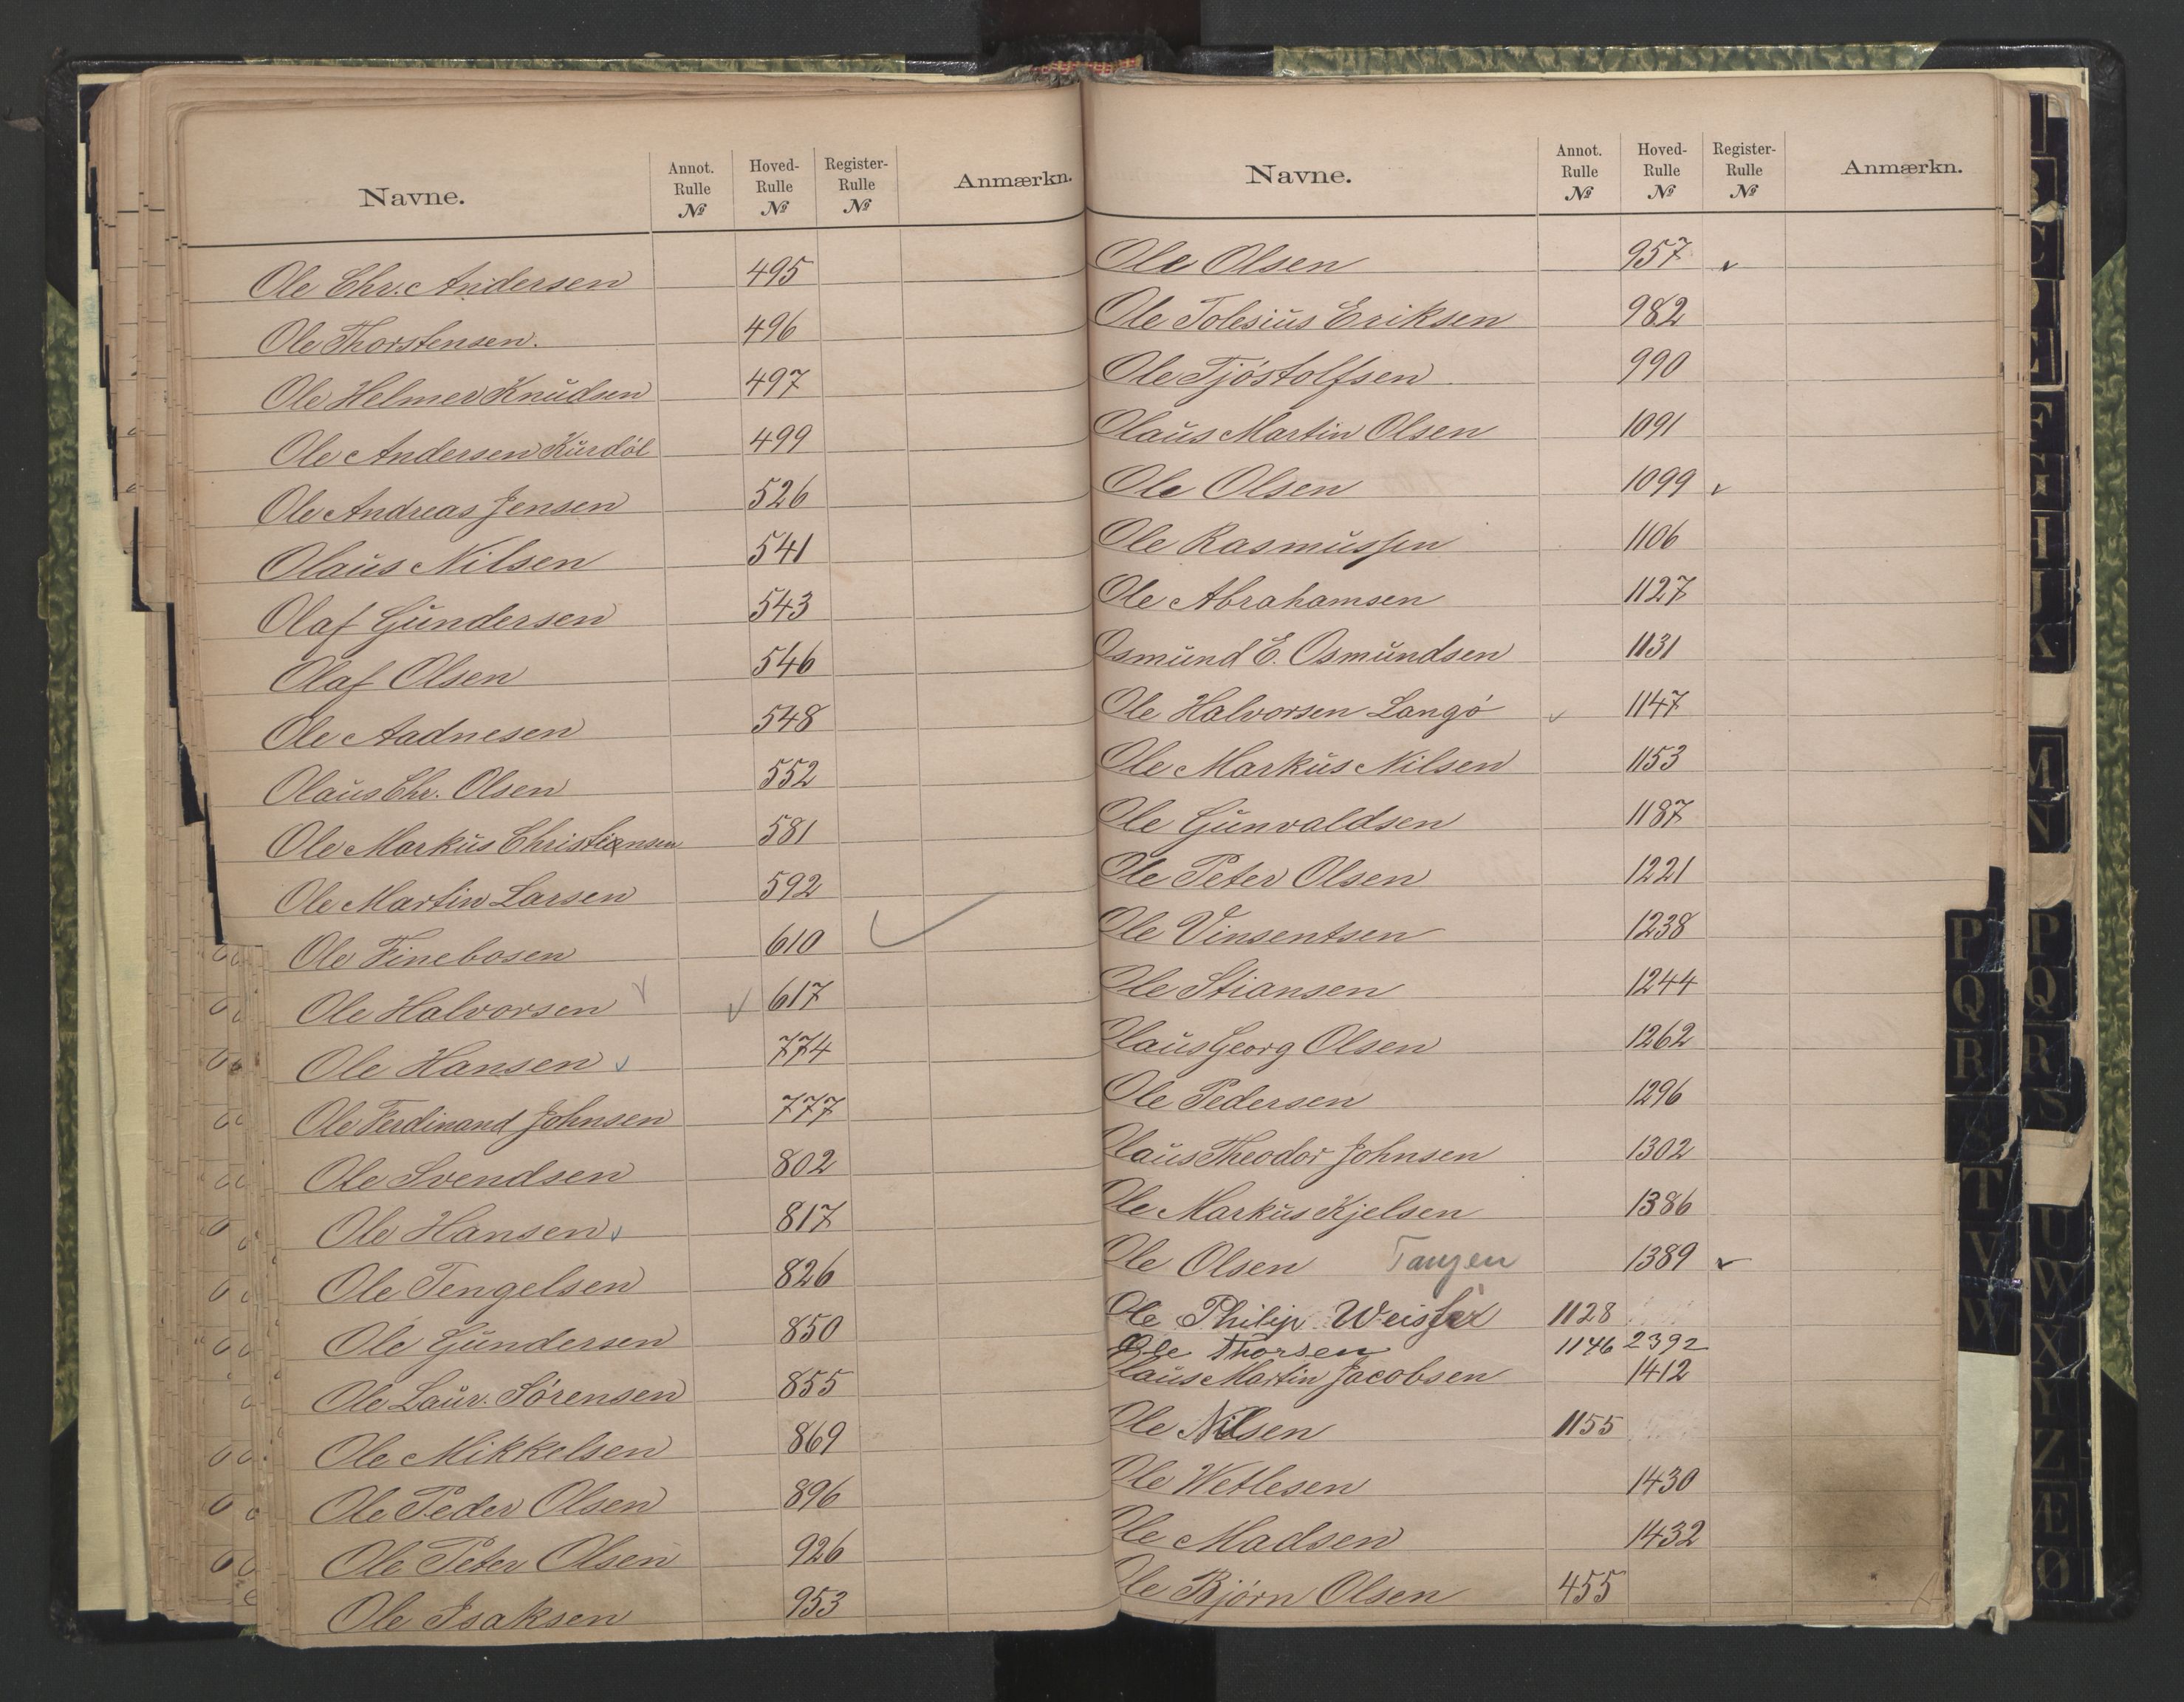 Navne. Annot. Rulle № Hoved-Rulle № Register-Rulle № Anmærkn.
Ole Chr. Andersen 495
Ole Thorstensen. 496
Ole Helmer Knudsen 497
Ole Andersen Kurdöl 499
Ole Andreas Jensen 526
Olaus Nilsen 541
Olaf Gundersen 543
Olaf Olsen 546
Ole Aadnesen 548
Olaus Chr. Olsen 552
Ole Markus Christiansen 581
Ole Martin Larsen 592
Ole Finebosen 610
Ole Halvorsen 617
Ole Hansen 774
Ole Ferdinand Johnsen 777
Ole Svendsen 802
Ole Hansen 817
Ole Tengelsen 826
Ole Gundersen 850
Ole Laur. Sörensen 855
Ole Mikkelsen 869
Ole Peder Olsen 896
Ole Peter Olsen 926
Ole Isaksen 953
Navne. Annot. Rulle № Hoved-Rulle № Register-Rulle № Anmærkn.
Ole Olsen 957
Ole Tolesius Eriksen 982
Ole Tjöstolfsen 990
Olaus Martin Olsen 1091
Ole Olsen 1099
Ole Rasmussen 1106
Ole Abrahamsen 1127
Osmund E. Osmundsen 1131
Ole Halvorsen Langö 1147
Ole Markus Nilsen 1153
Ole Gunvaldsen 1187
Ole Peter Olsen 1221
Ole Vinsentsen 1238
Ole Stiansen 1244
Olaus Georg Olsen 1262
Ole Pedersen 1296
Olaus Theodor Johnsen 1302
Ole Markus Kjelsen 1386
Ole Olsen Tangen 1389
Ole Philip 1128
Ole Thorsen 1146 2392
Olaus Martin Jacobsen 1412
Ole Nilsen 1155
Ole Wetlesen 1430
Ole Madsen 1432
Ole Björn Olsen 455
P
Q
R
S
T
V
W
B
C
D
E
F
G
H
J
K
M
N
P
Q
R
S
U
W
X
Y
Z
Æ
Ø